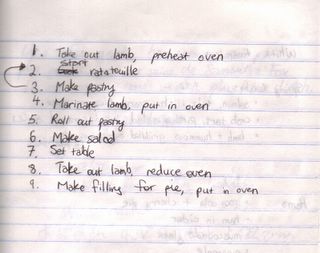 1. Take out lamb, preheat oven
2. start ratatouille
3. Make pastry
4. Marinate lamb, put in oven
5. Roll out pastry
6. Make salad
7. Set table
8. Take out lamb, reduce oven
9. Make filling for pie, put in oven